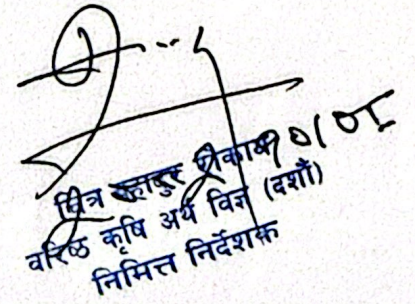 चित्र बहादुर श्रीकाय
वरिष्ठ कृषि अर्थ विज्ञ (दशौं)
निमित्त निर्देशक